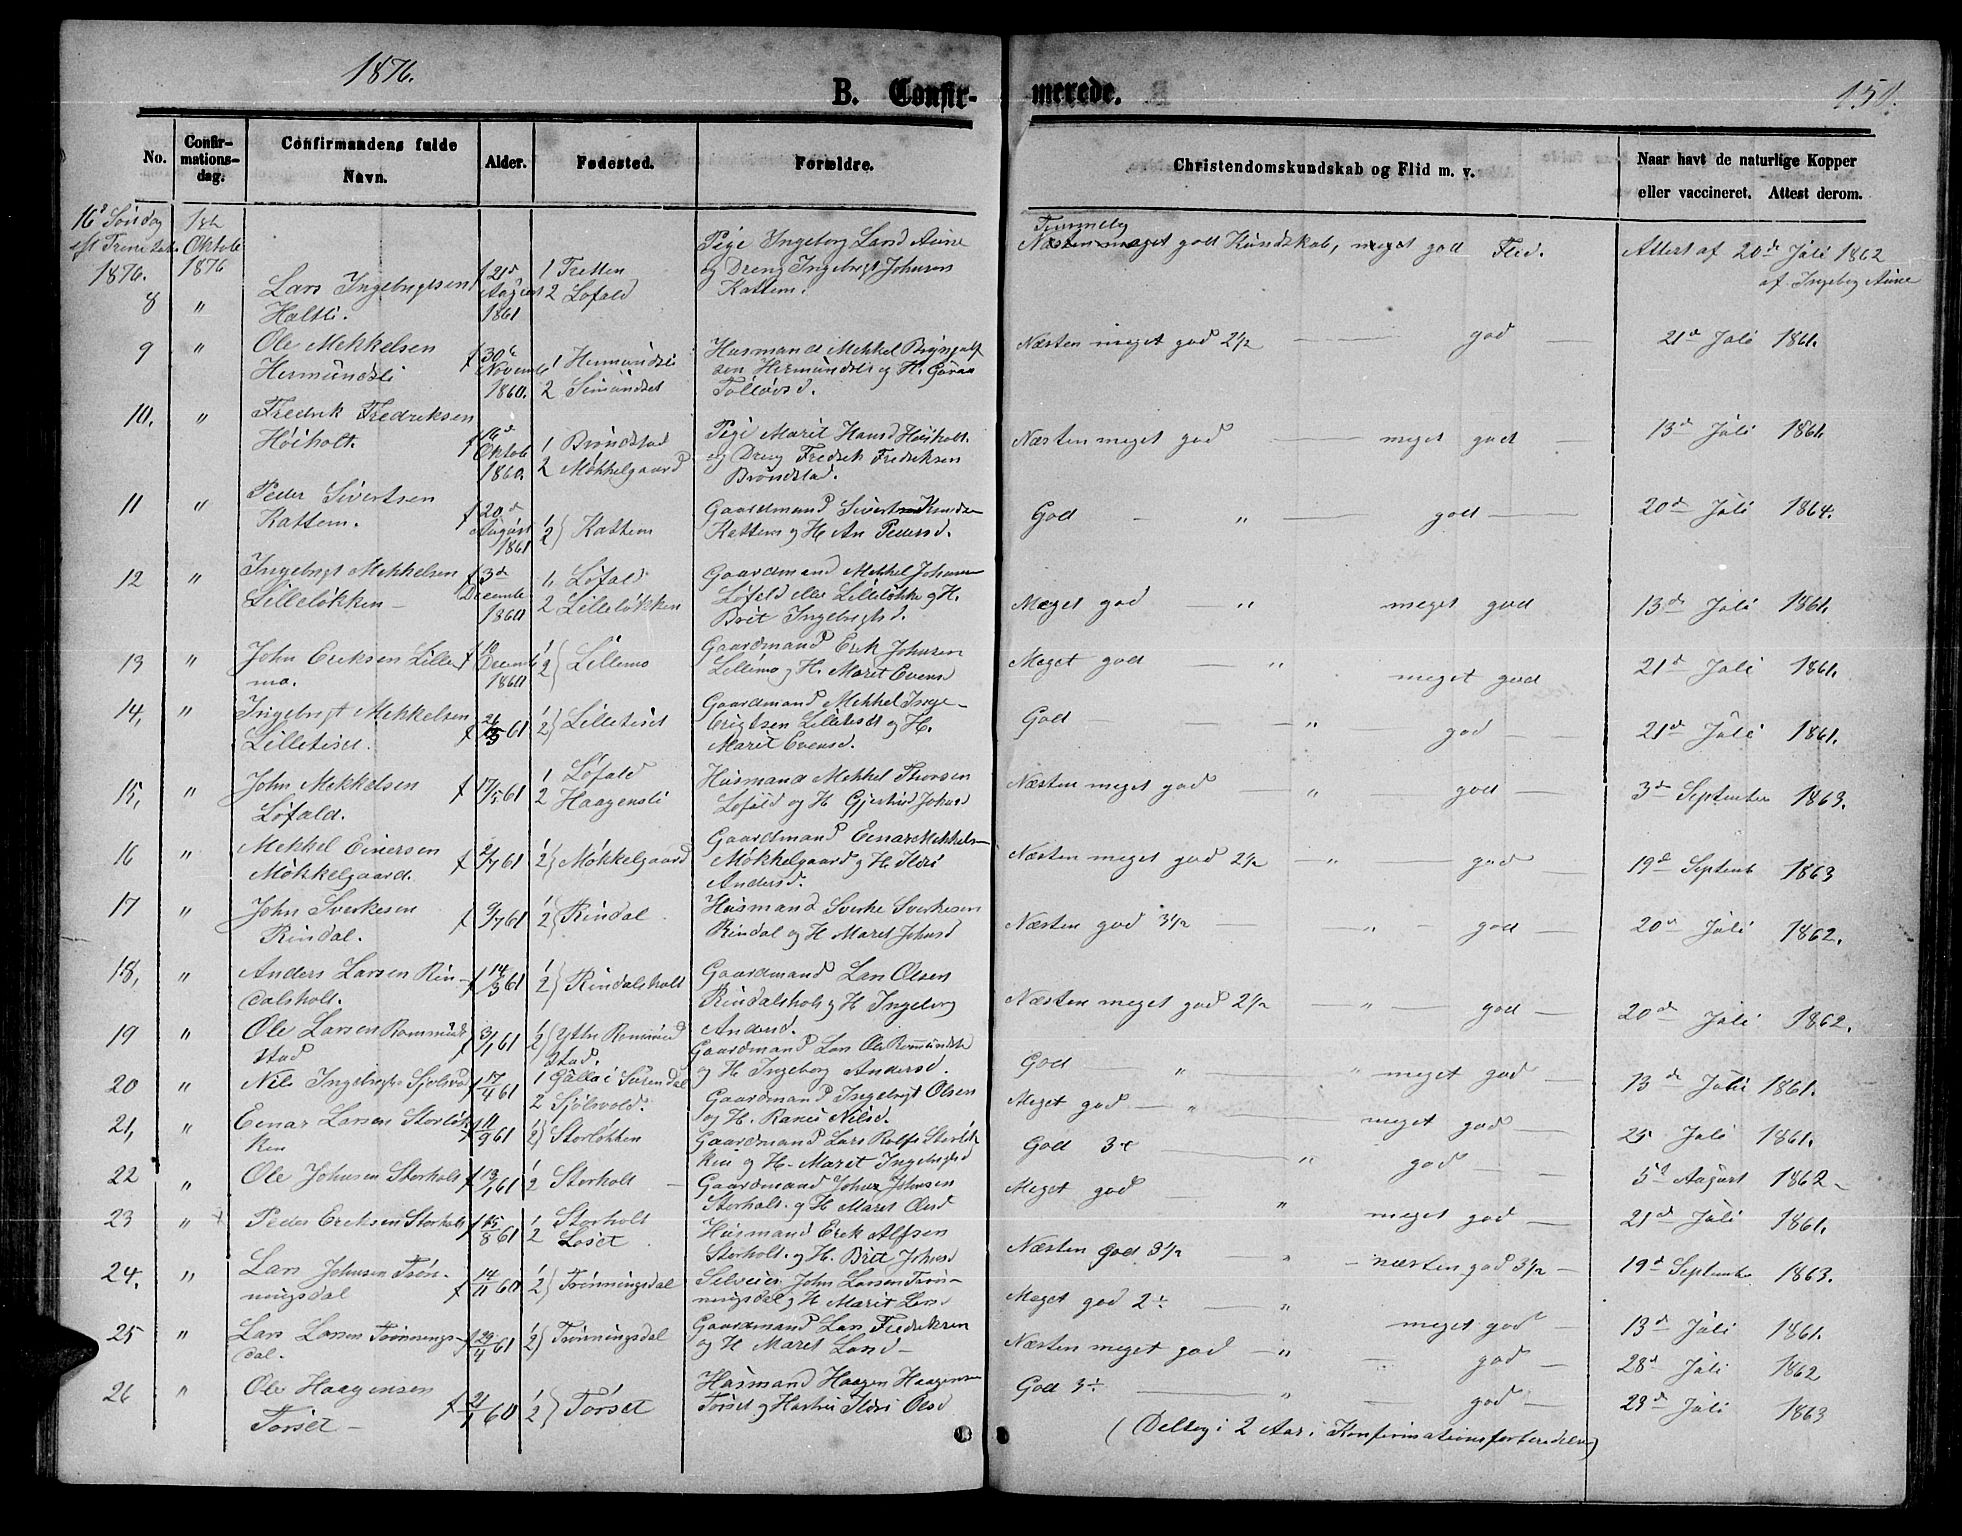 1876.
B. Confir-
merede.
151.
No.
Confir-
mations-
dag.
Confirmandens fulde
Navn.
Alder.
Fødested.
Forældre.
Christendomskundskab og Flid m. v.
Naar havt de naturlige Kopper
eller vaccineret. Attest derom.
16d Søndag
1876.
Oktob
1876
8 " Lars Ingebrigtsen
Haltli.
f 21d
August
1861
1 Tretten
2 Løfald
Pige Ingeborg Larsd Aune
og Dreng Ingebrigt Johnsen
Kattem.
Næsten meget god Kundskab, meget god Flid.
Attest af 20de Juli 1862
af Ingebog Aune
9 " Ole Mekkelsen
Hermundsli
f 30te
Novembe
1860.
1 Hermundsli
2 Simundset
Husmand Mekkel Brynjulf
sen Hermundsli og H. Guraa
Tollovsd.
Næsten meget god 2½ — god —
21d Juli 1861.
10. " Fredrik Fredriksen
Høiholt.
f 16d
Oktob
1860.
1 Brøndstad
2 Møkkelgaard
Pige Marit Hansd Høiholt.
og Dreng Fredrik Fredriksen
Brøndstad.
Næsten meget god — meget god —
13d Juli 1861.
11 " Peder Sivertsen
Kattem.
f 20d
August
1861
1
2) Kattem
Gaardmand Sivert Knudse
Kattem og H. An Pedersd.
God — " — god —
20d Juli 1864.
12 " Ingebrigt Mekkelsen
Lilleløkken —
f 3d
Decembe
1860
1. Løfald
2 Lilleløkken
Gaardmand Mekkel Johnsen
Løfald eller Lilleløkke og H.
Brit Ingebrigtsd.
Meget god " meget god
13de Juli 1861.
13 " John Eriksen Lille
mo.
f 10
Decemb
1860
1
2) Lillemo
Gaardmand Erik Johnsen
Lillemo og H. Marit Evensd
Meget god — " meget god
21d Juli 1861.
14, " Ingebrigt Mekkelsen
Lilletiset.
1
2) Lilletiset
Gaardmand Mekkel Inge-
brigtsen Lilletiset og H.
Marit Evensd.
God — " — god —
21d Juli 1861.
15, " John Mekkelsen
Løfald.
f 17/5 61
1 Løfald
2 Haagensli
Husmand Mekkel Thorsen
Løfald og H Gjertrud Johnsd
Næsten meget god — " — god —
3de September 1863.
16 " Mekkel Einersen
Møkkelgaard.
f 2/7 61
1
2) Møkkelgaard
Gaardmand Einar Mekkels-
Møkkelgaard og H. Ildri
Andersd.
Næsten meget god 2½ — " — god —
19d Septemb 1863
17 " John Sverkesen
Rindal.
f 9/7 61
1
2) Rindal.
Husmand Sverke Sverkesen
Rindal og H Maret Johnsd
Næsten god 3½ — " — god —
20d Juli 1862.
18, " Anders Larsen Rin-
dalsholt.
f 14/3 61
1
2) Rindalsholt
Gaardmand Lars Olsen
Rindalsholt og H Ingeborg
Andersd.
Næsten meget god 2½ — " — god —
20de Juli 1862.
19 " Ole Larsen Rommund
stad
f 3/1 61
1
2) Ytre Rommund
stad.
Gaardmand Lars Ols Rommundsta
og H Ingeborg Andersd.
God — " " meget god —
13de Juli 1861.
20 " Nils Ingebrigts Sjølsvo
f 17/4 61
1 Gulla i Surendal
2 Sjølsvold.
Gaardmand Ingebrigt Olsen
og H. Ranei Nilsd.
Meget god — " meget god —
25 Juli 1861.
21, " Einar Larsen Storløk
ken
f 11/9 61
1
2) Storløkken
Gaardmand Lars Rolfs Storløk
ken og H. Marit Ingebrigtsd
God 3 — " god —
5d August 1862 —
22 " Ole Johnsen Storholt
f 13/1 61
1
2 Storholt
Gaardmand John Johnsen
Storholt. og H Maret Olsd
Meget god — " meget god —
21d Juli 1861.
23 " Peder Eriksen Storholt
f 15/8 61
1 Storholt
2 Løset
Husmand Erik Alfsen
Storholt. og H. Brit Johnsd
Næsten god 3½ — " — næsten god 3½ —
19d Septembe 1863.
24. " Lars Johnsen Trøn-
ningsdal
f 14/11 60
1
2) Trønningsdal
Selveier John Larsen Trøn-
ningsdal og H Marit Larsd
Meget god 2 — " meget god —
13d Juli 1861.
25 " Lars Larsen Trønnings-
dal.
f 29/4 61
1
2) Trønningsdal
Gaardmand Lars Fredriksen
og H Maret Larsd —
Næsten meget god — " — god —
28d Juli 1862
26 " Ole Haagensen
Torset —
f 21/1 60
1
2) Torset
Husmand Haagen Haagense
Torset og Hustru Ildri Olsd
God 3 — " — god —
23d Juli 1863
(Deltog i 2 Aar i Konfirmationsforberedelse)